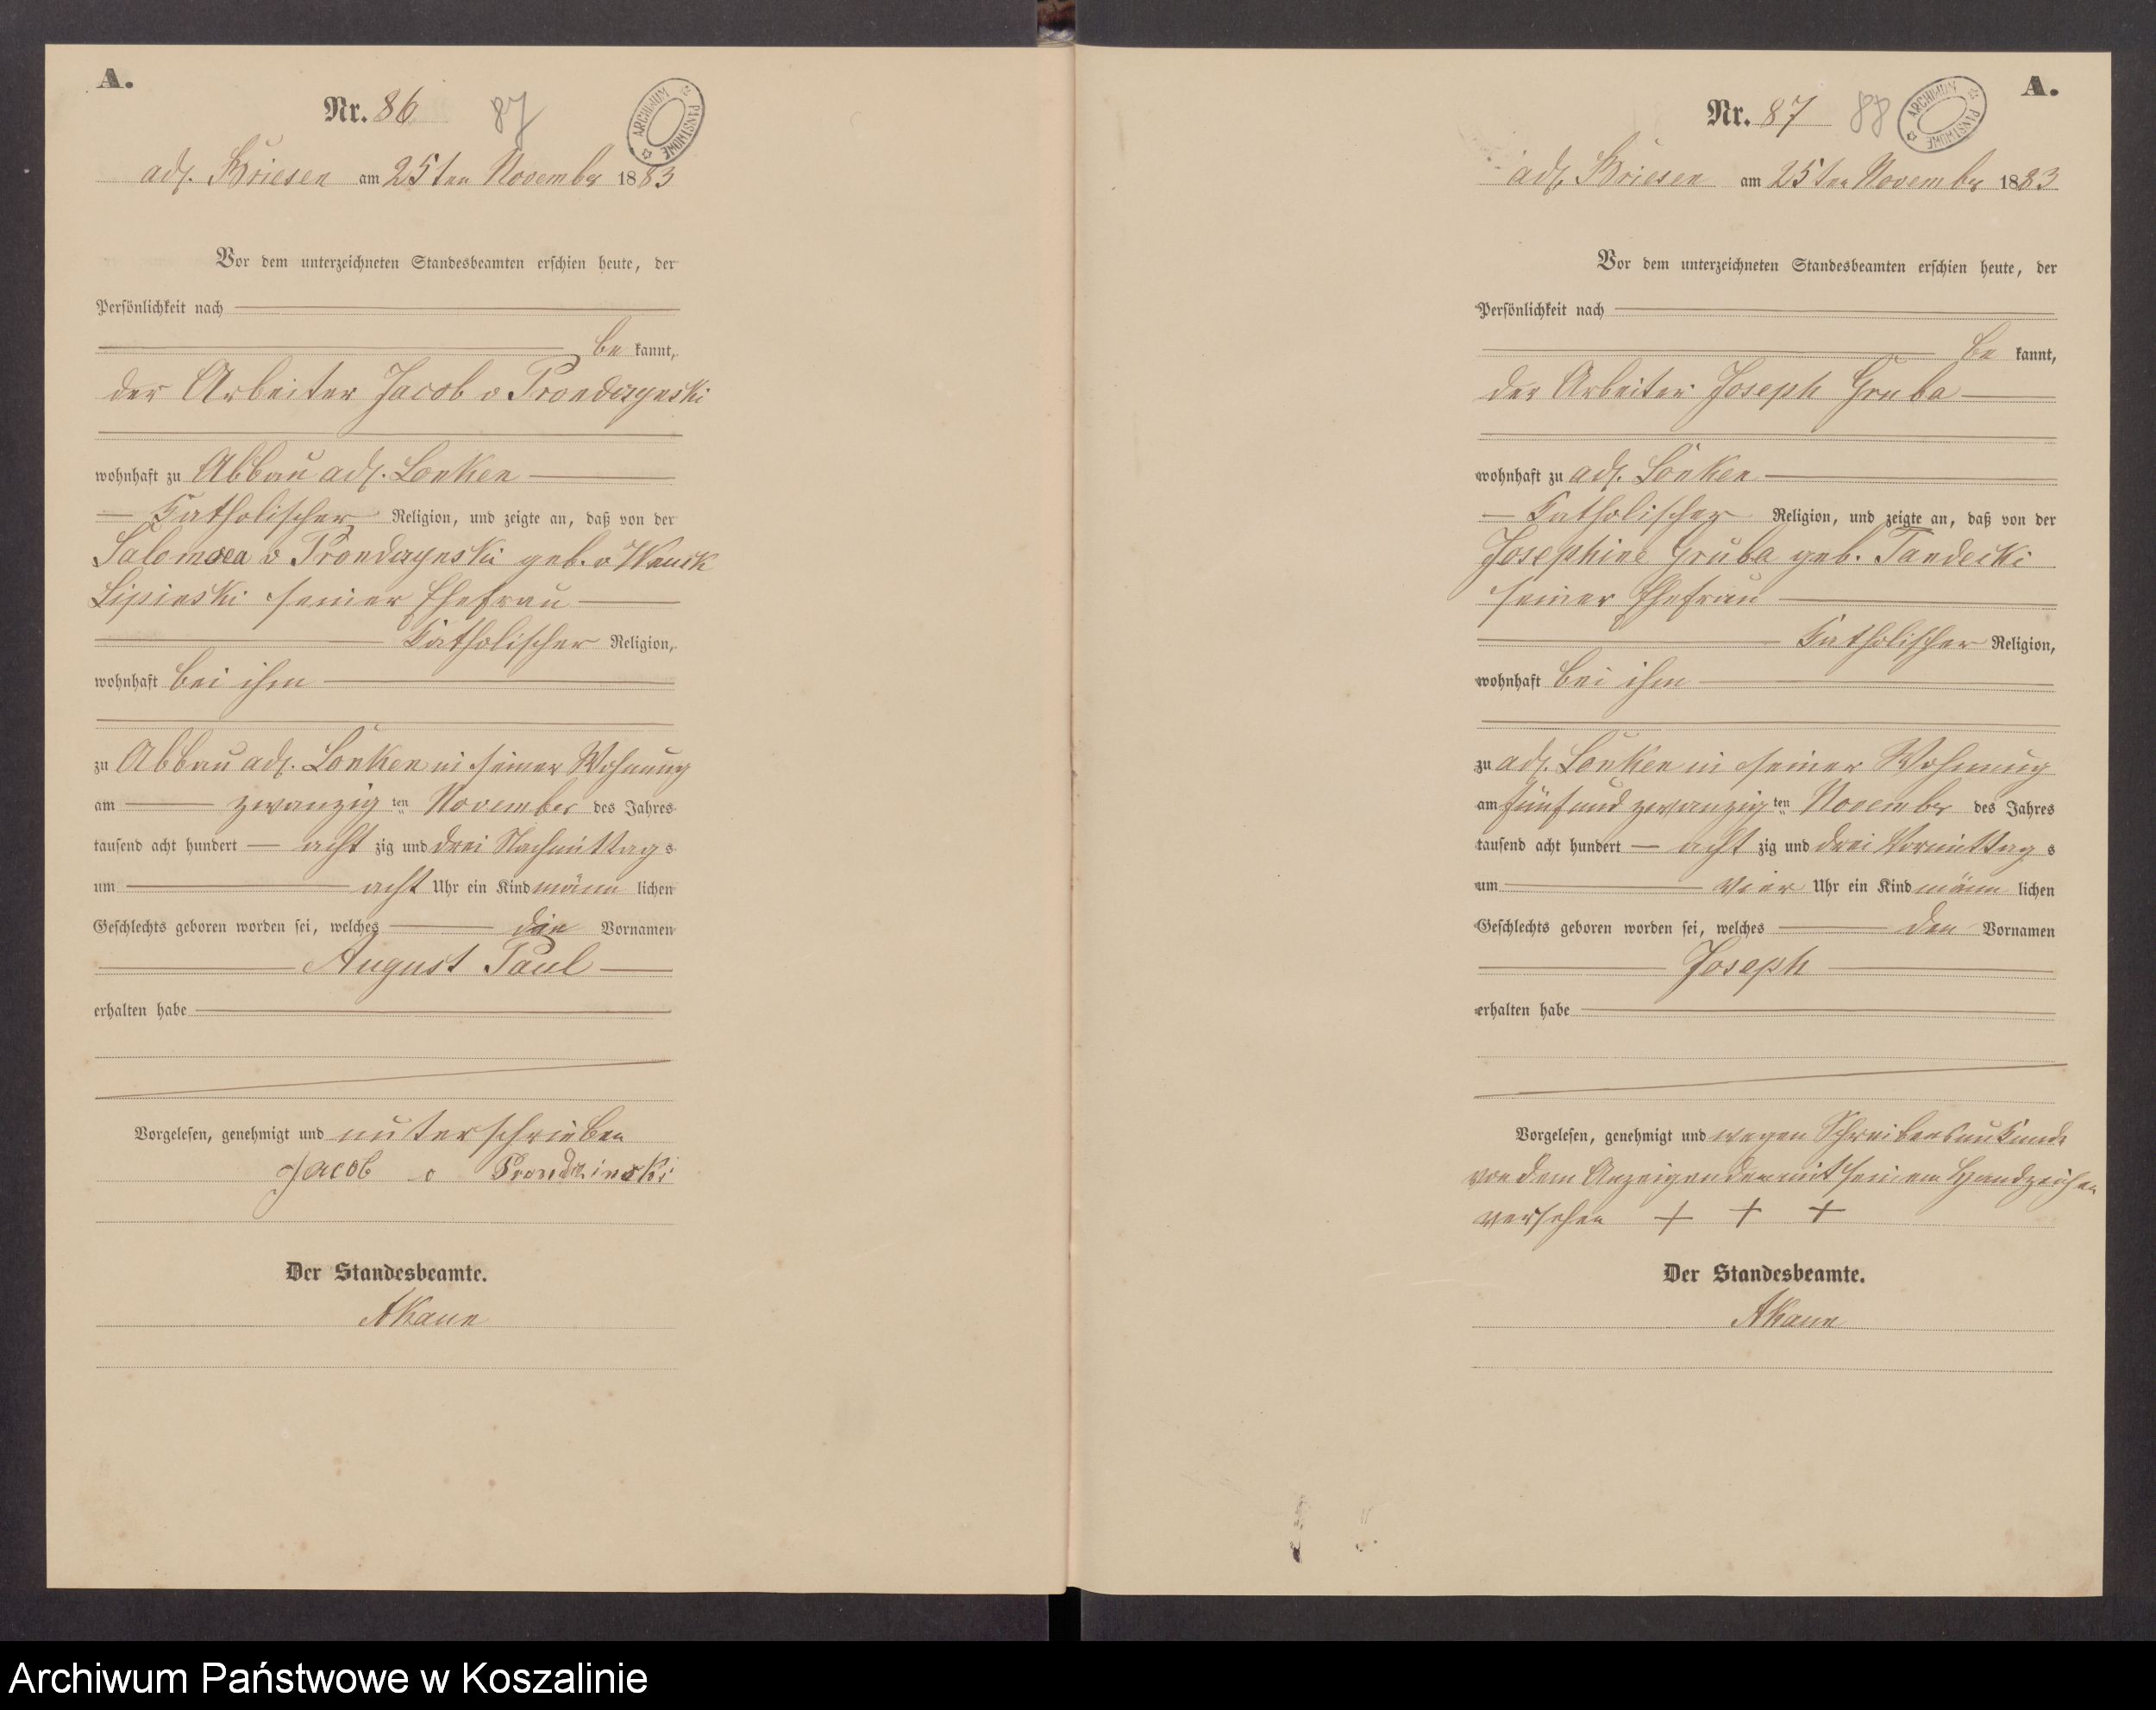 A.
Nr. 86
87
ARCHIWUM PAŃSTWOWE
adl. Briesen am 25ten November 1883
Vor dem unterzeichneten Standesbeamten erschien heute, der
Persönlichkeit nach
be kannt,
der Arbeiter Jacob v Prondzynski
wohnhaft zu Abbau adl. Lonken
Katholischer Religion, und zeigte an, daß von der
Salomaea v Prondzynski geb. v Wnuck
Lipinski seiner Ehefrau
Katholischer Religion,
wohnhaft bei ihm
zu Abbau adl. Lonken in seiner Wohnung
am zwanzig ten November des Jahres
tausend acht hundert acht zig und drei Nachmittags
um acht Uhr ein Kind männ lichen
Geschlechts geboren worden sei, welches die Vornamen
August Paul
erhalten habe
Vorgelesen, genehmigt und unterschrieben
Jacob v Prondzinski
Der Standesbeamte.
A.
Nr. 87
88
ARCHIWUM PAŃSTWOWE
adl. Briesen am 25ten November 1883
Vor dem unterzeichneten Standesbeamten erschien heute, der
Persönlichkeit nach
be kannt,
der Arbeiter Joseph Gruba
wohnhaft zu adl. Lonken
Katholischer Religion, und zeigte an, daß von der
Josephine Gruba geb. Tandecki
seiner Ehefrau
Katholischer Religion,
wohnhaft bei ihm
zu adl. Lonken in seiner Wohnung
am fünf und zwanzig ten November des Jahres
tausend acht hundert acht zig und drei Vormittags
um vier Uhr ein Kind männ lichen
Geschlechts geboren worden sei, welches den Vornamen
Joseph
erhalten habe
Vorgelesen, genehmigt und wegen Schreibensunkunde
von dem Anzeigenden mit seinem Handzeichen
versehen + + +
Der Standesbeamte.
Archiwum Państwowe w Koszalinie